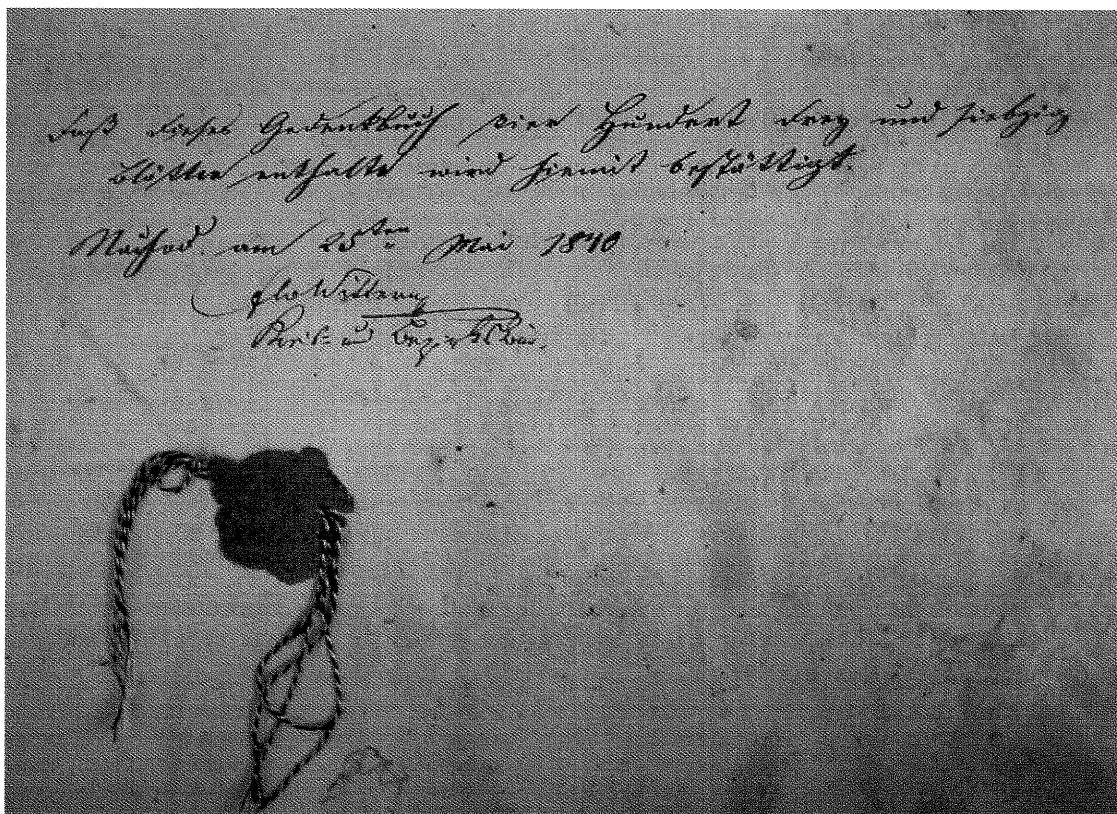 Daß dieses Gedenkbuch vier Hundert drey und siebzig
Blätter enthalte wird hiemit bestättigt.
Nachod am 25ten Mai 1840